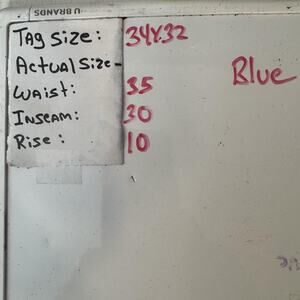 U BRANDS
Tag Size: 34x32
Actual Size-
Waist: 35
Blue
Inseam: 30
Rise: 10